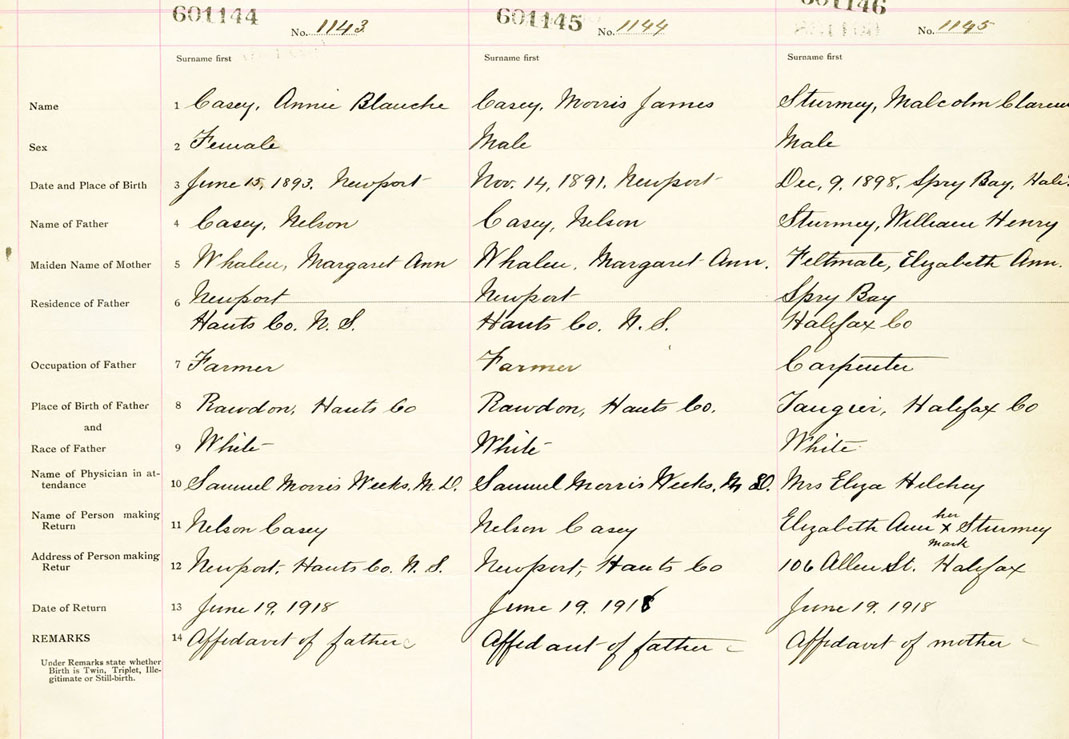 601144 601145 601146
No. 1143 No. 1144 No. 1145
Surname first Surname first Surname first
Name 1 Casey, Annie Blanche Casey, Morris James Sturmey, Malcolm
Sex 2 Female Male Male
Date and Place of Birth 3 June 15, 1893. Newport Nov. 14, 1891. Newport Dec. 9, 1898, Spry Bay,
Name of Father 4 Casey, Nelson Casey, Nelson Sturmey, William Henry
Maiden Name of Mother 5 Whalen, Margaret Ann Whalen, Margaret Ann. Feltmate, Elizabeth Ann.
Residence of Father 6 Newport Newport Spry Bay
Hants Co. N. S. Hants Co. N. S. Halifax Co
Occupation of Father 7 Farmer Farmer Carpenter
Place of Birth of Father 8 Rawdon, Hants Co Rawdon, Hants Co. Tangier, Halifax Co
and
Race of Father 9 White White White
Name of Physician in at-
tendance 10 Samuel Morris Weeks, M. D. Samuel Morris Weeks, M. D. Mrs Eliza Hilchey
Name of Person making
Return 11 Nelson Casey Nelson Casey Elizabeth Ann her x mark Sturmey
Address of Person making
Retur 12 Newport, Hants Co. N. S. Newport, Hants Co 106 Allen St. Halifax
Date of Return 13 June 19, 1918 June 19. 1918 June 19. 1918
REMARKS 14 Affidavit of father Affidavit of father Affidavit of mother
Under Remarks state whether
Birth is Twin, Triplet, Ille-
gitimate or Still-birth.